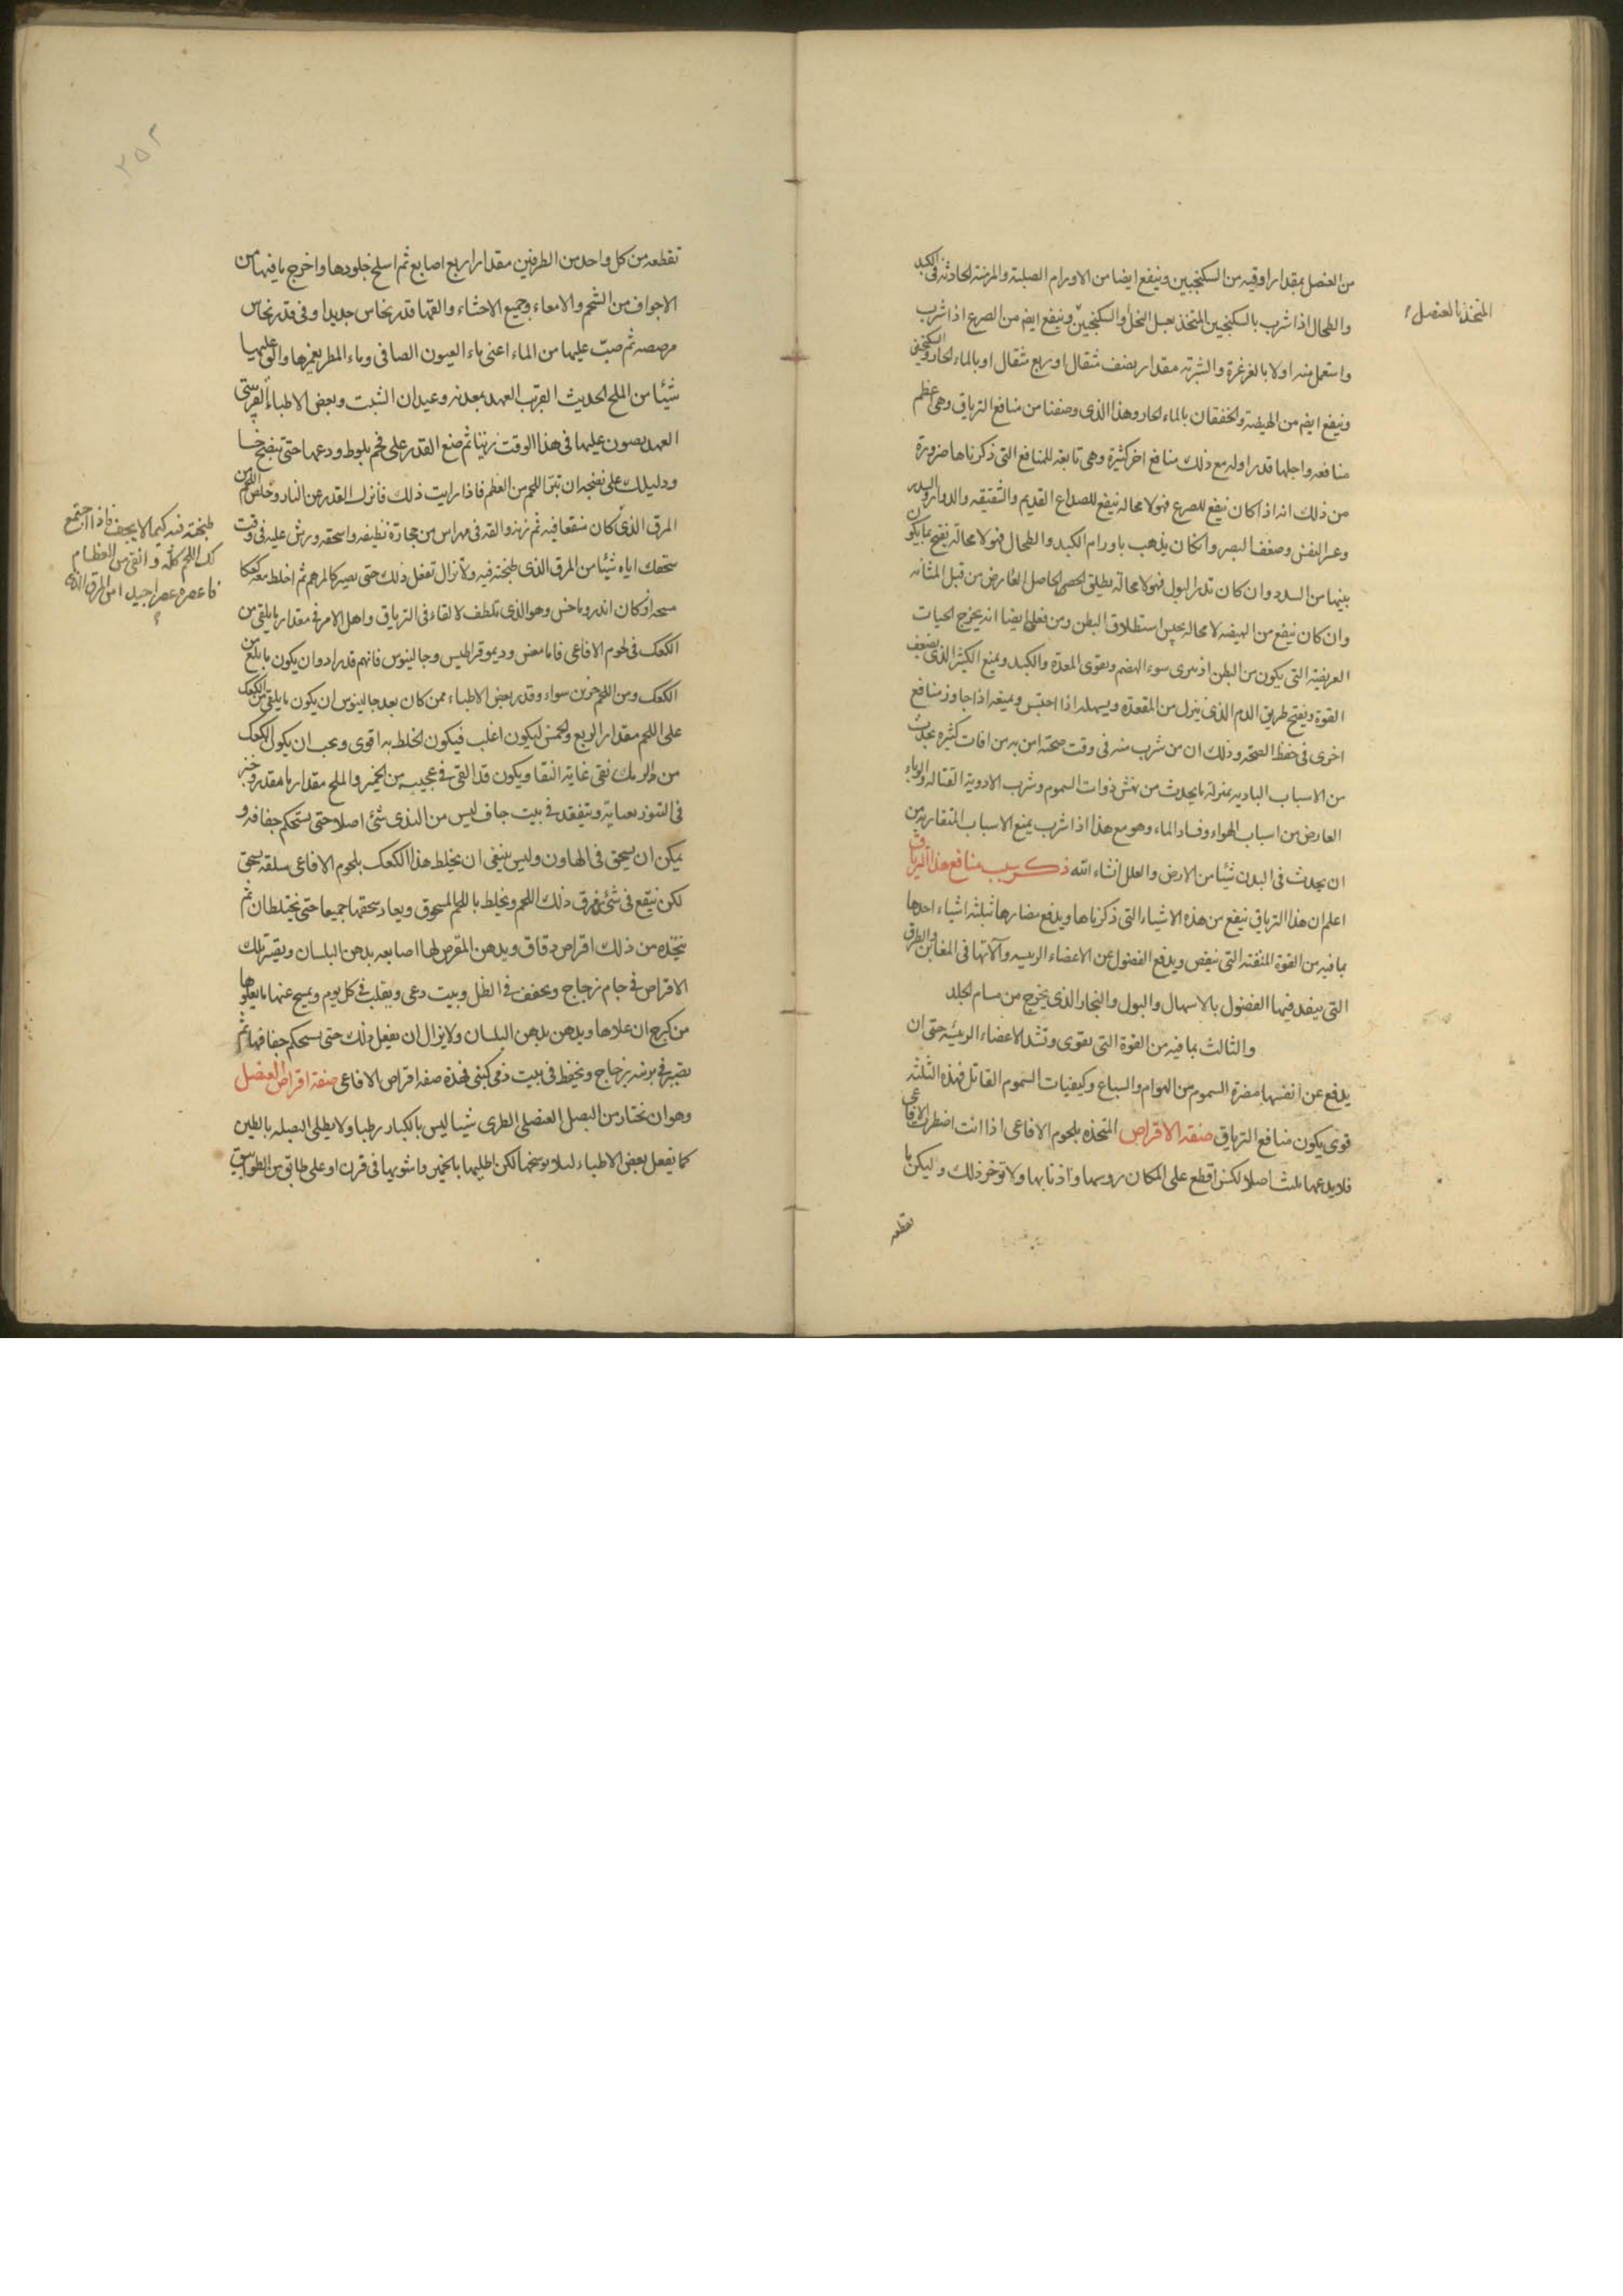 من العنصل بمقدار اوقيه من السكنجبين وينفع ايضا من الاورام الصلبة والمزمنة الحادثة فى الكبد
والطحال اذا شرب بالسكنجبين المتخذ بعسل النحل او السكنجبين وينفع ايضم من الصرع اذا شرب
المتخذ بالعنصل
واستعمل منه اولا بالغرغرة والشربة مقدار نصف مثقال او ربع مثقال او بالماء الحار والسكنجبين
وينفع ايضم من الهيضة والخفقان بالماء الحار وهذا الذى وصفنا من منافع الترياق وهى اعظم
منافعه واجلها قدرا وله مع ذلك منافع اخر كثيرة وهى تابعة للمنافع التى ذكرناها ضرورة
من ذلك انه اذا كان ينفع للصرع فهو لا محالة ينفع للصداع القديم والشقيقة والدوار والسدر
وعسر النفس وضعف البصر وان كان يذهب باورام الكبد والطحال فهو لا محالة يفتح ما يكون
بينها من السدد وان كان تدر البول فهو لا محالة يطلق الحصى الحاصل العارض من قبل المثانه
وان كان ينفع من الهيضه لا محالة يحبس استطلاق البطن ومن فعله ايضا انه يخرج الحيات
العريضة التى يكون من البطن اذ يبرى سوء الهضم ويقوى المعدة والكبد ويمنع الكثير الذى يضعف
القوة ويفتح طريق الدم الذى ينزل من المقعدة ويسهله اذا احتبس ويمنعه اذا جاوز منافع
اخرى فى حفظ الصحة وذلك ان من شرب منه فى وقت صحته امن به من افات كثيره يحدث
من الاسباب الباديه بمنزلة ما يحدث من نهش ذوات السموم وشرب الادوية القتالة والوباء
العارض من اسباب الهواء وفساد الماء وهو مع هذا اذا شرب يمنع الاسباب المتقاربة من
ان يحدث فى البدن شيئا من الامراض والعلل انشاء الله ذكر سبب منافع هذا الترياق
اعلم ان هذا الترياق ينفع من هذه الاشياء التى ذكرناها ويدفع مضارها بثلثة اشياء احدها
بما فيه من القوة المنقية التى تنقص ويدفع الفضول عن الاعضاء الرييسه وآلاتها فى المغابن والطرق
التى ينفد فيها الفضول بالاسهال والبول والبخار الذى يخرج من مسام الجلد
والثالث بما فيه من القوة التى تقوى وتشد الاعضاء الرييسه حتى ان
يدفع عن انفسها مضرة السموم من الهوام والسباع وكيفيات السموم القاتل فهذه الثلثة
قوى يكون منافع الترياق صفة الاقراص المتخذه بلحوم الافاعى اذا انت اضطرت الافاعى
فلا يدعها تلبث اصلا لكن اقطع على المكان روسها واذنابها ولا توخر ذلك وليكن ما
تقطعه
تقطعه من كل واحد من الطرفين مقدار اربع اصابع ثم اسلخ جلودها واخرج ما فيها من
الاجواف من الشحم والامعاء وجميع الاحشاء والقها قدر نحاس جديد او فى قدر نحاس
مرصصه ثم صب عليها من الماء اعنى ماء العيون الصافى وماء المطر يغمرها والق عليها
شيئا من الملح الحديث القريب العهد بمعدنه وعيدان الشبت وبعض الاطباء القريبى
العهد يصبون عليها فى هذا الوقت زيتا ثم ضع القدر على فحم بلوط ودعها حتى تنضج
ودليلك على نضجه ان تبرا اللحم من العظم فاذا رايت ذلك فانزل القدر عن النار وخلص اللحم من
المرق الذى كان منقعا فيه ثم زنه والقه فى مهراس من حجارة نظيفه واسحقه ورش عليه فى وقت
سحقك اياه شيئا من المرق الذى طبخته فيه ولا تزال تفعل ذلك حتى يصير كالمرهم ثم اخلط معه كعكا
طبخته فيه كيما لا يجف فاذا اجتمع
لك اللحم كله وانقى من العظام
فاعصره عصرا جيدا من المرق الذى
الكعك فى لحوم الافاعى فاما مغنس وديموقراطيس وجالينوس فانهم قدرادوا ان يكون ما يلقى من
الكعك ومن اللحم جزئين سواء وقدر بعض الاطباء ممن كان بعد جالينوس ان يكون ما يلقى من الكعك
على اللحم مقدار الربع والخمس ليكون اغلب فيكون الخلط به اقوى ويجب ان يكون الكعك
فى التنور بعناية ويتفقد فى بيت جاف ليس من الندى شئ اصلا حتى يستحكم جفافه و
يمكن ان يسحق فى الهاون وليس ينبغى ان يخلط هذا الكعك بلحوم الافاعى سلقه يسحق
لكن ينقع فى شئ مرق ذلك اللحم ويخلط باللحم المسحوق ويعاد سحقها جميعا حتى يختلطان ثم
يتخذه من ذلك اقراص دقاق ويدهن المقرص لها اصابعه بدهن البلسان ويصير تلك
الاقراص فى جام زجاج ويجفف فى الظل وبيت دعى ويقلب فى كل يوم ويمسح عنها ما يعلوها
من كرج ان علاها ويدهن بدهن البلسان ولا يزال ان يفعل ذلك حتى يستحكم جفافها ثم
يصير فى برنيه زجاج ويحفظ فى بيت فهذه صفه اقراص الافاعى صفة اقراص العنصل
وهو ان تختار من البصل العنصلى الطرى شيئا ليس بالكبار رطبا ولا يطلى البصله بالطين
كما يفعل بعض الاطباء ليلا يوسخها لكن اطليها بالخمير واشويها فى فرن او على طابق من الطوابيق